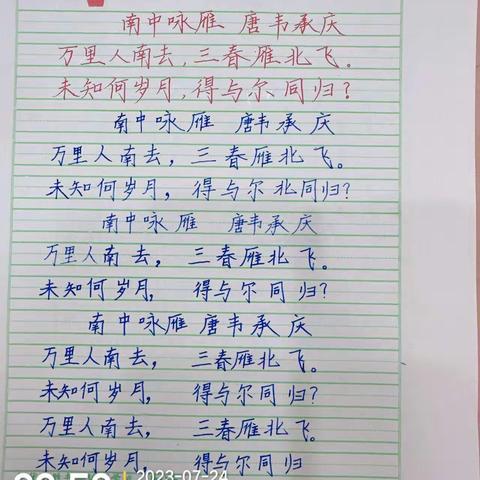 南中咏雁 唐韦承庆
万里人南去,三春雁北飞。
未知何岁月,得与尔同归?
南中咏雁 唐韦承庆
万里人南去,三春雁北飞。
未知何岁月,得与尔北同归?
南中咏雁 唐韦承庆
万里人南去,三春雁北飞。
未知何岁月,得与尔同归?
南中咏雁 唐韦承庆
万里人南去,三春雁北飞。
未知何岁月,得与尔同归?
万里人南去,三春雁北飞。
未知何岁月,得与尔同归
2023-07-24